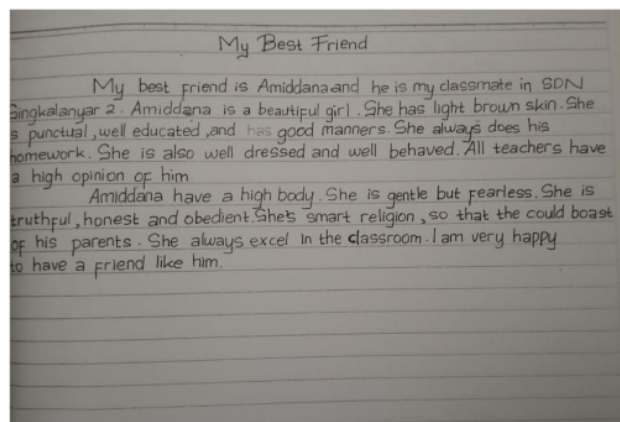 My Best Friend
My best friend is Amiddana and he is my classmate in SDN
Singkalanyar 2. Amiddana is a beautiful girl. She has light brown skin. She
s punctual, well educated, and has good manners. She always does his
homework. She is also well dressed and well behaved. All teachers have
a high opinion of him
Amiddana have a high body. She is gentle but fearless. She is
truthful, honest and obedient. She's smart religion, so that the could boast
of his parents. She always excel in the classroom. I am very happy
to have a friend like him.